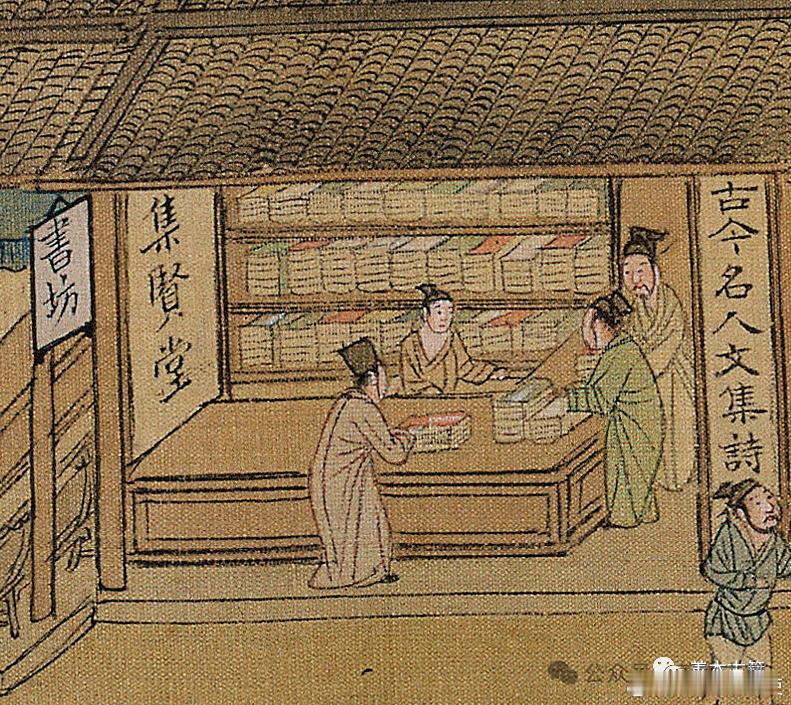 書坊
集賢堂
古今名人文集詩
公众
善本古籍